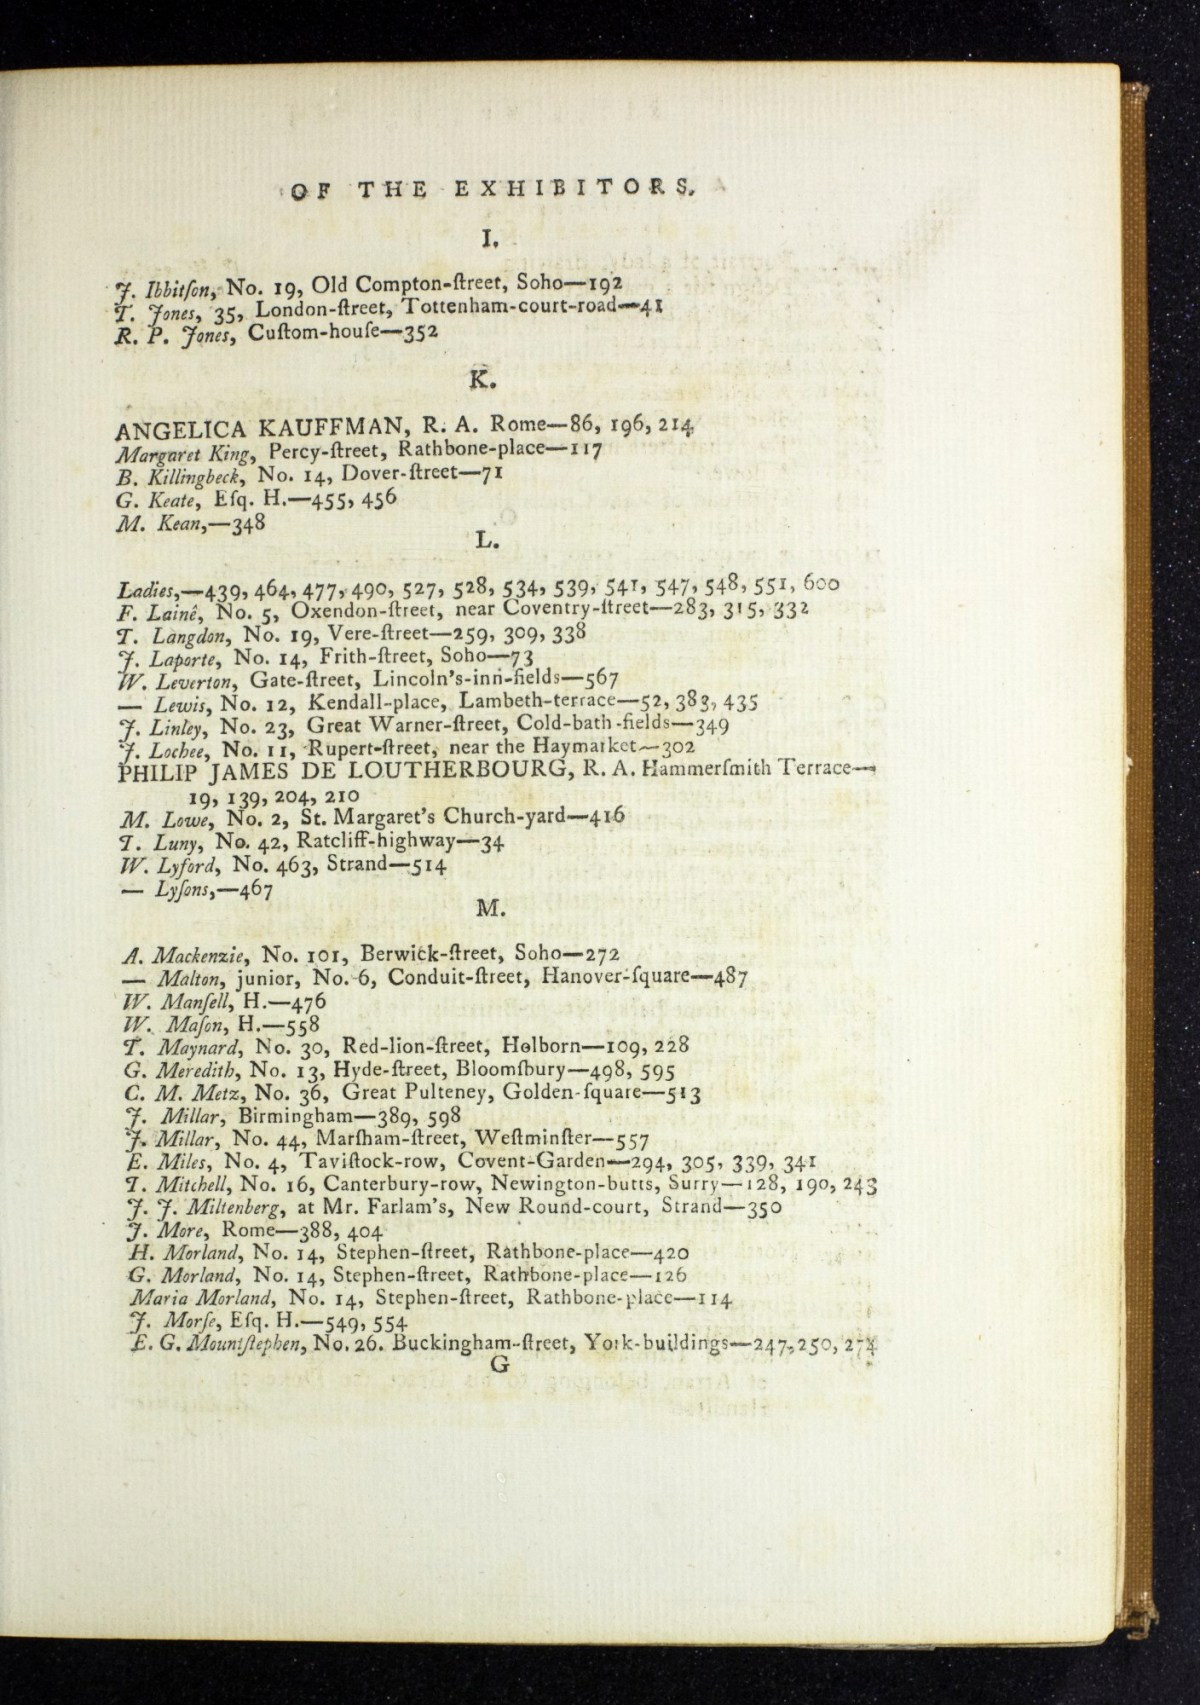 OF THE EXHIBITORS.
I.
J. Ibbitſon, No. 19, Old Compton-ſtreet, Soho—192
T. Jones, 35, London-ſtreet, Tottenham-court-road—41
R. P. Jones, Cuſtom-houſe—352
K.
ANGELICA KAUFFMAN, R. A. Rome—86, 196, 214
Margaret King, Percy-ſtreet, Rathbone-place—117
B. Killingbeck, No. 14, Dover-ſtreet—71
G. Keate, Eſq. H.—455, 456
M. Kean,—348
L.
Ladies,—439, 464, 477, 490, 527, 528, 534, 539, 541, 547, 548, 551, 600
F. Lainê, No. 5, Oxendon-ſtreet, near Coventry-ſtreet—283, 315, 332
T. Langdon, No. 19, Vere-ſtreet—259, 309, 338
J. Laporte, No. 14, Frith-ſtreet, Soho—73
W. Leverton, Gate-ſtreet, Lincoln's-inn-fields—567
— Lewis, No. 12, Kendall-place, Lambeth-terrace—52, 383, 435
J. Linley, No. 23, Great Warner-ſtreet, Cold-bath-fields—349
J. Lochee, No. 11, Rupert-ſtreet, near the Haymarket—302
PHILIP JAMES DE LOUTHERBOURG, R. A. Hammerſmith Terrace—
19, 139, 204, 210
M. Lowe, No. 2, St. Margaret's Church-yard—416
T. Luny, No. 42, Ratcliff-highway—34
W. Lyford, No. 463, Strand—514
— Lyſons,—467
M.
A. Mackenzie, No. 101, Berwick-ſtreet, Soho—272
— Malton, junior, No. 6, Conduit-ſtreet, Hanover-ſquare—487
W. Manſell, H.—476
W. Maſon, H.—558
T. Maynard, No. 30, Red-lion-ſtreet, Holborn—109, 228
G. Meredith, No. 13, Hyde-ſtreet, Bloomſbury—498, 595
C. M. Metz, No. 36, Great Pulteney, Golden-ſquare—513
J. Millar, Birmingham—389, 598
J. Millar, No. 44, Marſham-ſtreet, Weſtminſter—557
E. Miles, No. 4, Taviſtock-row, Covent-Garden—294, 305, 339, 341
T. Mitchell, No. 16, Canterbury-row, Newington-butts, Surry—128, 190, 243
J. J. Miltenberg, at Mr. Farlam's, New Round-court, Strand—350
J. More, Rome—388, 404
H. Morland, No. 14, Stephen-ſtreet, Rathbone-place—420
G. Morland, No. 14, Stephen-ſtreet, Rathbone-place—126
Maria Morland, No. 14, Stephen-ſtreet, Rathbone-place—114
J. Morſe, Eſq. H.—549, 554
E. G. Mountſtephen, No. 26. Buckingham-ſtreet, York-buildings—247, 250, 274
G